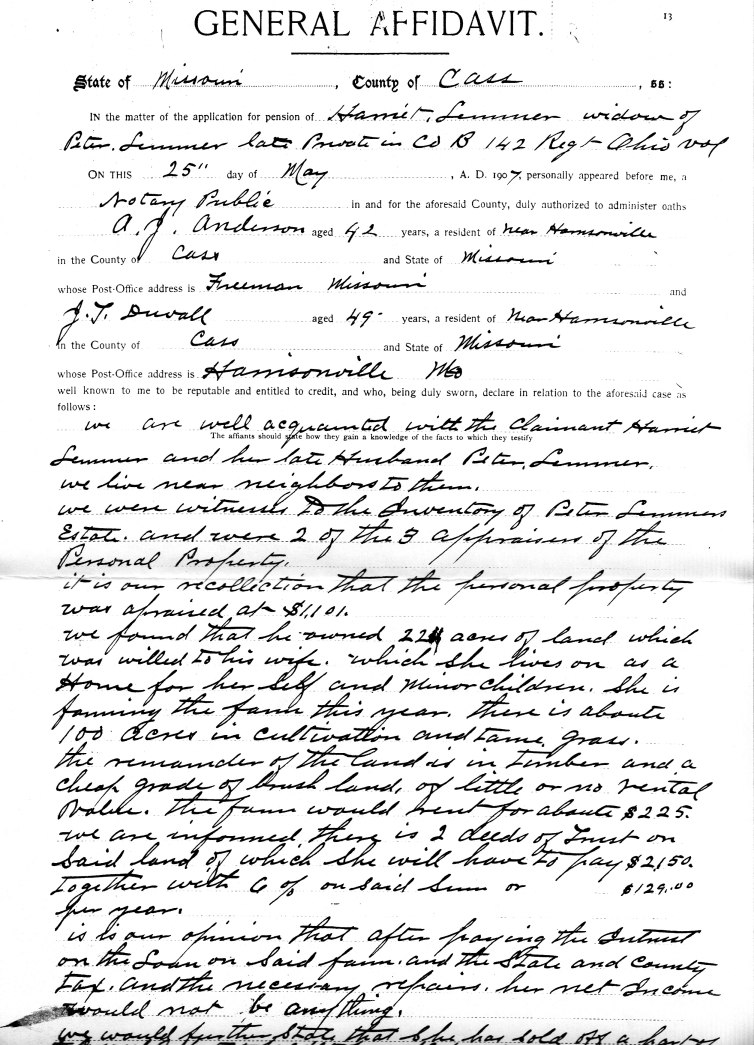 GENERAL AFFIDAVIT.
13
State of Missouri, County of Cass, ss:
IN the matter of the application for pension of Harriet, Lemmer widow of
Peter, Lemmer late Private in Co B 142 Regt Ohio vol
ON THIS 25" day of May, A. D. 1907, personally appeared before me, a
Notary Public in and for the aforesaid County, duly authorized to administer oaths
A. J. Anderson aged 42 years, a resident of near Harrisonville
in the County of Cass and State of Missouri
whose Post-Office address is Freeman Missouri and
J. T. Duvall aged 49 years, a resident of Near Harrisonville
in the County of Cass and State of Missouri
whose Post-Office address is Harrisonville Mo
well known to me to be reputable and entitled to credit, and who, being duly sworn, declare in relation to the aforesaid case as
follows:
we are well acquanted with the Claimant Harriet
The affiants should state how they gain a knowledge of the facts to which they testify
Lemmer and her late Husband Peter, Lemmer.
we live near neighbors to them.
we were witnesses To the Inventory of Peter Lemmers
Estate. and were 2 of the 3 appraisers of the
Personal Property.
it is our recollection that the personal property
was apraised at $1,101.
we found that he owned acres of land which
was willed to his wife. which she lives on as a
Home for her Self and Minor children. She is
farming the farm this year. there is aboute
100 acres in cultivation and tame grass.
the remainder of the land is in timber and a
cheap grade of brush land, of little or no rental
value. the farm would rent for aboute $225.
we are informed there is 2 deeds of Trust on
said land of which she will have to pay $2,150.
together with 6 % on said Sum or $129.00
per year.
is is our opinion that after paying the Intrust
on the Loan on said farm. and the State and County
Tax. and the necessary repairs. her net Income
would not be anything.
we would further State that she has sold off a part of